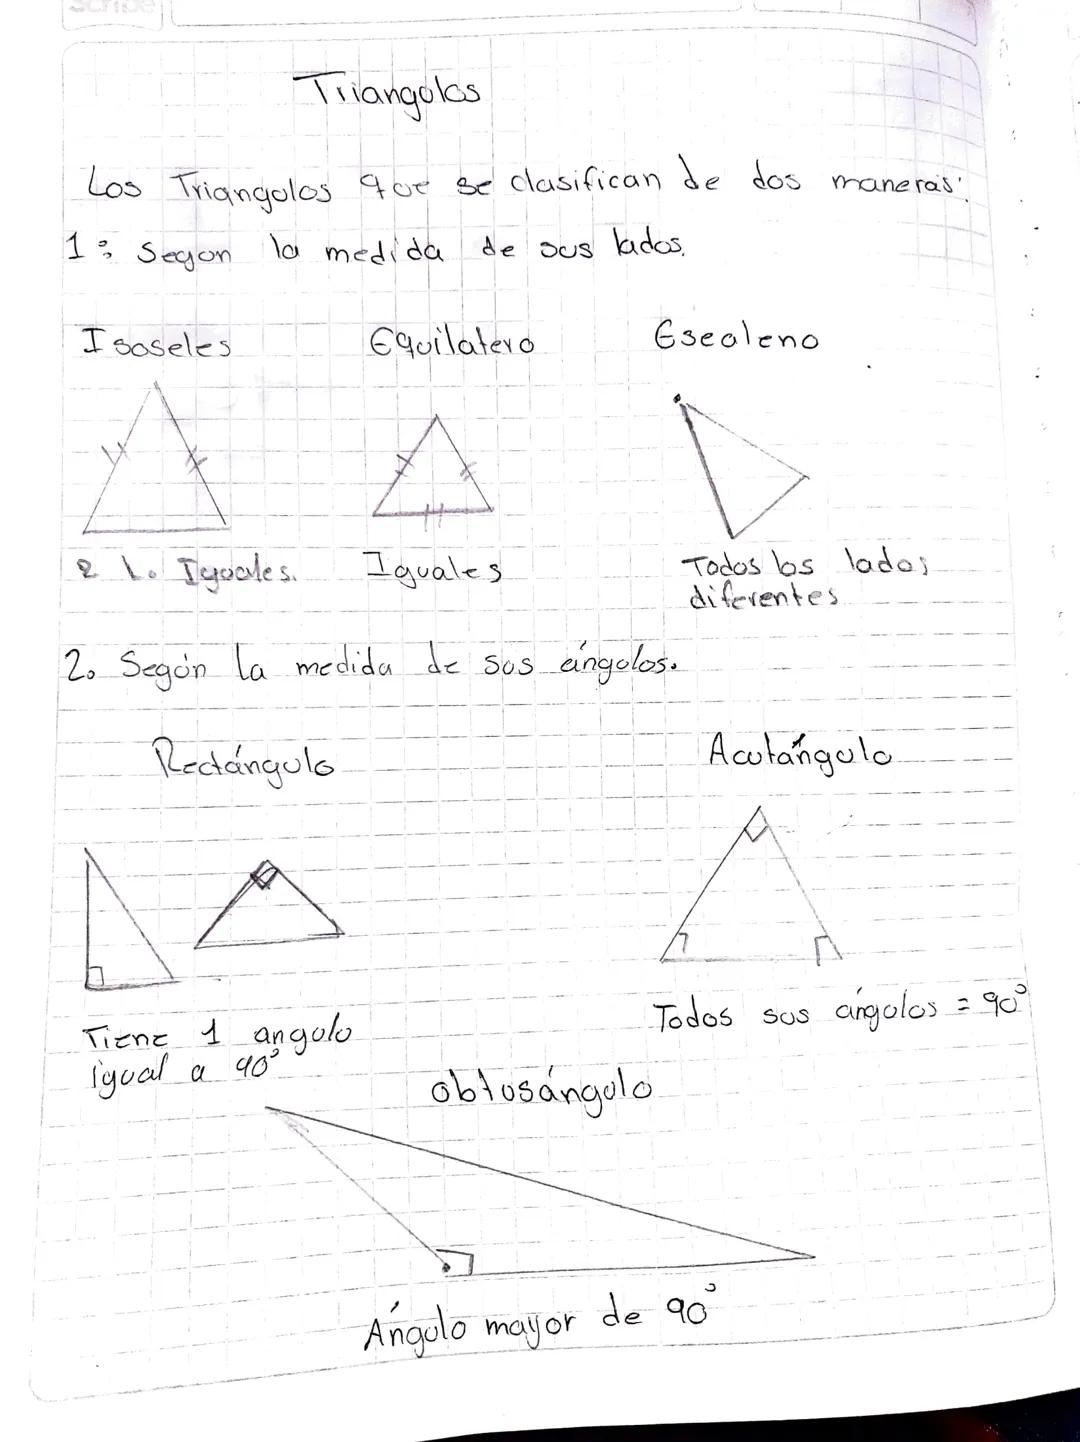 Scribe
Triangulos
Los Triangulos que se clasifican de dos maneras:
1: Segun la medida de sus lados.
Isoseles Equilatero Escaleno
2 l. Iguales. Iguales Todos los lados
diferentes
2. Según la medida de sus ángulos.
Rectángulo Acutángulo
Tiene 1 angulo
igual a 90°
Todos sus ángulos = 90°
obtusángulo
Ángulo mayor de 90°